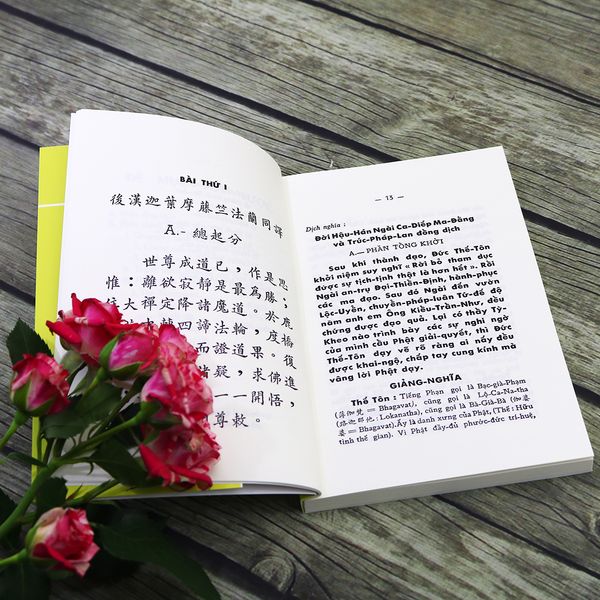 BÀI THỨ I
後漢迦葉摩藤竺法蘭同譯
A.- 總起分
世尊成道已，作是思
惟：離欲寂靜是最為勝；
大禪定降諸魔道。於鹿
四諦法輪，度橋
而證道果。復
諸疑，求佛進
一一開悟，
尊敕。
— 13 —
Dịch nghĩa :
Đời Hậu-Hán Ngài Ca-Diếp Ma-Đằng
và Trúc-Pháp-Lan đồng dịch
A.— PHẦN TỔNG KHỞI
Sau khi thành đạo, Đức Thế-Tôn
khởi niệm suy nghĩ « Rời bỏ tham dục
được sự tịch-tịnh thật là hơn hết ». Rồi
Ngài an-trụ Đại-Thiền-Định, hành-phục
các ma đạo. Sau đó Ngài đến vườn
Lộc-Uyển, chuyển-pháp-luân Tứ-đế độ
năm anh em Ông Kiều-Trần-Như, đều
chứng được đạo quả. Lại có thầy Tỳ-
Kheo nào trình bày các sự nghi ngờ
của mình cầu Phật giải-quyết, thì Đức
Thế-Tôn dạy vẽ rõ ràng ai nấy đều
được khai-ngộ, chắp tay cung kính mà
vâng lời Phật dạy.
GIẢNG-NGHĨA
Thế Tôn : Tiếng Phạn gọi là Bạc-già-Phạm
(薄伽梵 = Bhagavat), cũng gọi là Lộ-Ca-Na-tha
(路迦那他: Lokanatha), cũng gọi là Bà-Già-Bà (伽
婆 = Bhagavat). Ấy là danh xưng của Phật, (Thế : Hữu
tình thế gian). Vì Phật đầy-đủ phước-đức trí-huệ,